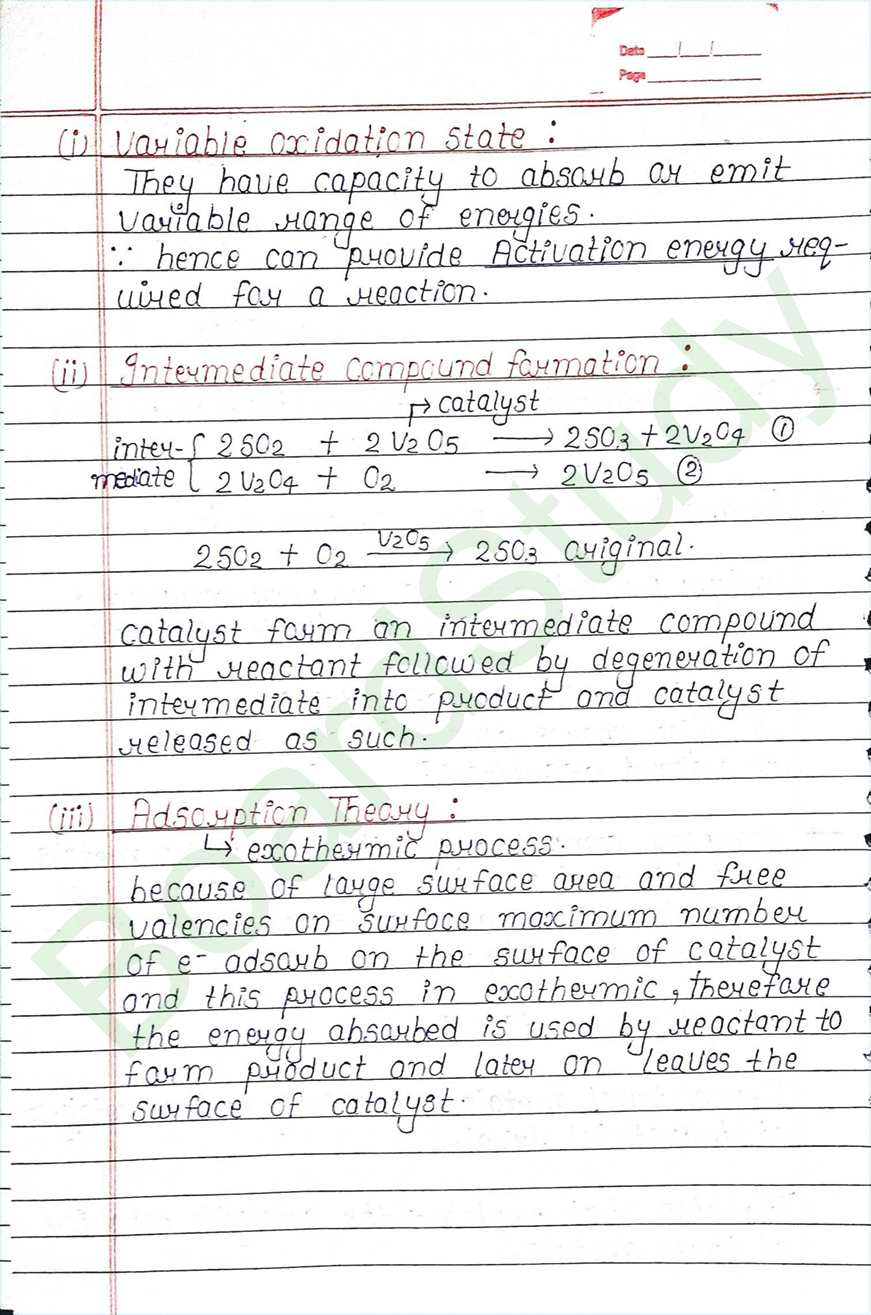 Date __/__/____
Page ________
(i) Variable oxidation state :
They have capacity to absorb or emit
variable range of energies.
∵ hence can provide Activation energy req-
uired for a reaction.
(ii) Intermediate compound formation :
↱ catalyst
inter- { 2SO2 + 2V2O5 ⟶ 2SO3 + 2V2O4 ①
mediate { 2V2O4 + O2 ⟶ 2V2O5 ②
2SO2 + O2 —V2O5→ 2SO3 original.
catalyst form an intermediate compound
with reactant followed by degeneration of
intermediate into product and catalyst
released as such.
(iii) Adsorption Theory :
↳ exothermic process.
because of large surface area and free
valencies on surface maximum number
of e- adsorb on the surface of catalyst
and this process in exothermic, therefore
the energy absorbed is used by reactant to
form product and later on leaves the
surface of catalyst.
BoardStudy